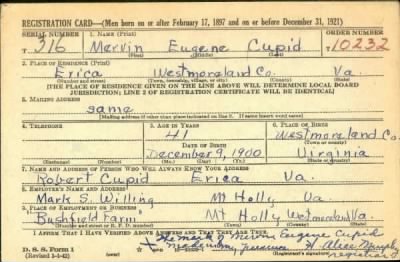 REGISTRATION CARD—(Men born on or after February 17, 1897 and on or before December 31, 1921)
SERIAL NUMBER 1. NAME (Print) ORDER NUMBER
T 316 Mervin Eugene Cupid 10232
(First) (Middle) (Last)
2. PLACE OF RESIDENCE (Print)
Erica Westmoreland Co. Va.
(Number and street) (Town, township, village, or city) (County) (State)
[THE PLACE OF RESIDENCE GIVEN ON THE LINE ABOVE WILL DETERMINE LOCAL BOARD
JURISDICTION; LINE 2 OF REGISTRATION CERTIFICATE WILL BE IDENTICAL]
3. MAILING ADDRESS
same
[Mailing address if other than place indicated on line 2. If same insert word same]
4. TELEPHONE 5. AGE IN YEARS 6. PLACE OF BIRTH
41 Westmoreland Co.
DATE OF BIRTH (Town or county)
December 9, 1900 Virginia
(Exchange) (Number) (Mo.) (Day) (Yr.) (State or country)
7. NAME AND ADDRESS OF PERSON WHO WILL ALWAYS KNOW YOUR ADDRESS
Robert Cupid Erica Va.
8. EMPLOYER'S NAME AND ADDRESS
Mark S. Willing Mt Holly Va.
9. PLACE OF EMPLOYMENT OR BUSINESS
"Bushfield Farm" Mt Holly Westmoreland Va.
(Number and street or R. F. D. number) (Town) (County) (State)
I AFFIRM THAT I HAVE VERIFIED ABOVE ANSWERS AND THAT THEY ARE TRUE.
D. S. S. Form 1 X The mark of Mervin Eugene Cupid
(Revised 1-1-42) made in my presence Alice Murphy
registrar